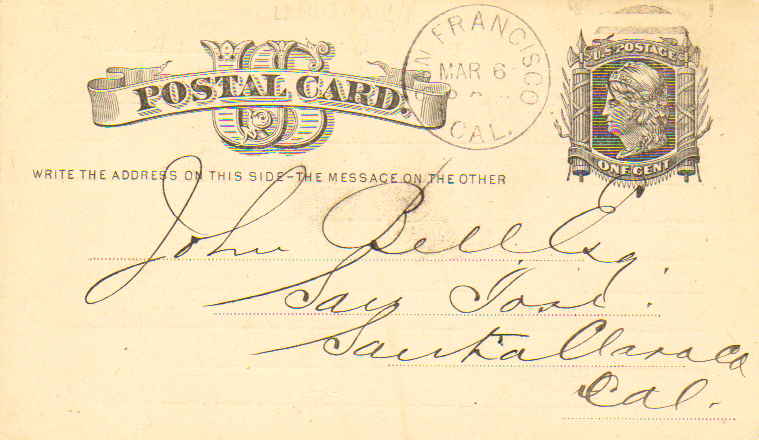 POSTAL CARD.
US
SAN FRANCISCO
MAR 6
CAL.
U.S. POSTAGE
ONE CENT
WRITE THE ADDRESS ON THIS SIDE-THE MESSAGE ON THE OTHER
John Bell. Esq.
San Jose.
Santa Clara Co
Cal.